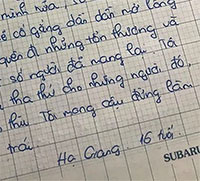 mình nữa,
sẽ cố gắng dần dần mở lòng
quên đi những tổn thương và
số người đã mang lại. Tớ
tha thứ cho những người đó,
Tớ mong cậu đừng làm
trái
Hạ Giang 16 tuổi
SUBARU